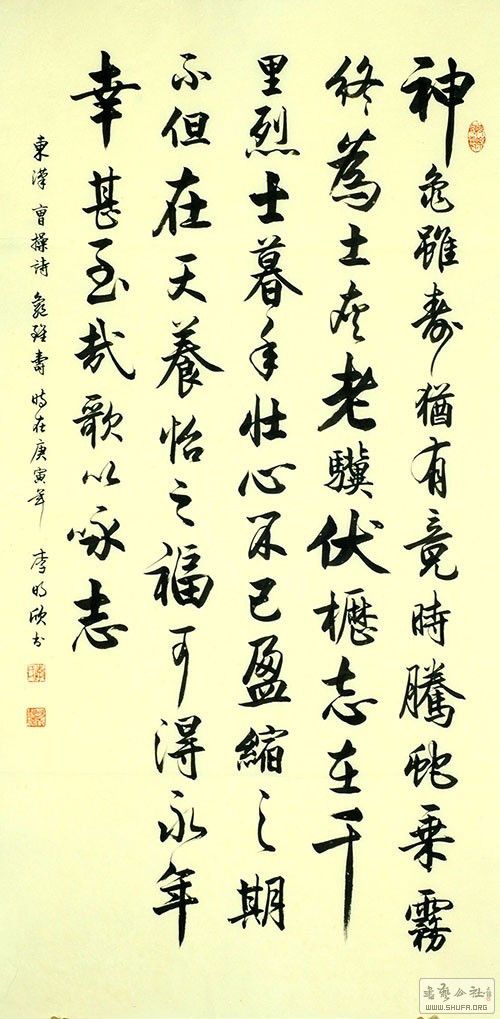 神龜雖壽猶有竟時騰蛇乘霧
終為土灰老驥伏櫪志在千
里烈士暮年壯心不已盈縮之期
不但在天養怡之福可得永年
幸甚至哉歌以咏志
東漢曹操詩龜雖壽時在庚寅年李明欣书
書藝公社
WWW.SHUFA.ORG